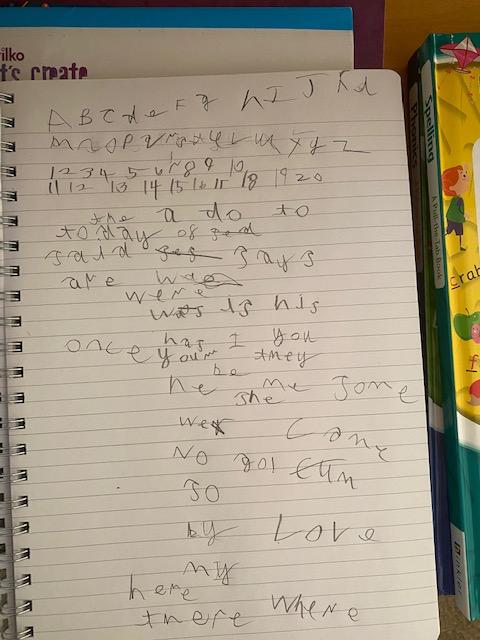 ilko
t's create
Spelling
Phonics
A Pull-the-Tab Book
crab
A B C d e F g h I J K d
M n o P q r s t y u v w x y z
1 2 3 4 5 6 7 8 9 10
11 12 13 14 15 16 17 18 19 20
the a do to
today of
said says
are
were
was is his
once has I you
your they
be
he me some
she
we come
NO go
so
by Love
my
here
there where